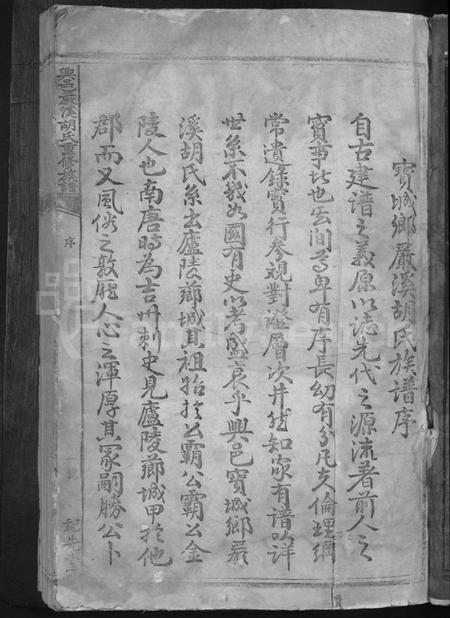 寶城鄉嚴溪胡氏族譜序
自古建譜之義原以誌先代之源流著前人之
實事也此宏间尊卑有序長幼有分凡夫倫理綱
常遺錄實行參觀對證層次井然知家有譜以詳
世系不幾如國有史以考盛衰乎興邑寶城鄉嚴
溪胡氏系出廬陵薌城其祖貽於公霸公霸公金
陵人也南唐時為吉州刺史見廬陵薌城甲於他
郡而又風俗之敦龐人心之渾厚其冢嗣勝公卜
興邑嚴溪胡氏重修族譜
序